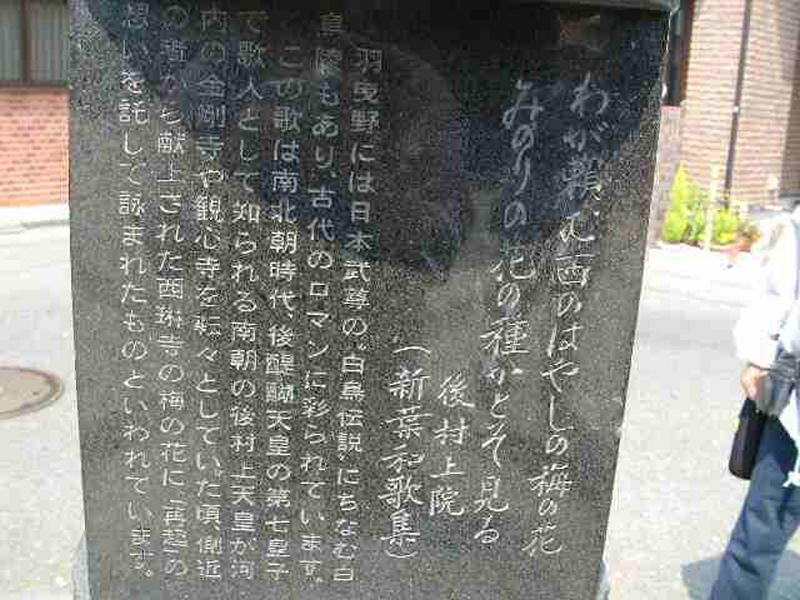 わが頼む西のはやしの梅の花
みのりの花の種かとぞ見る
後村上院
(新葉和歌集)
羽曳野には日本武尊の“白鳥伝説”にちなむ白
鳥陵もあり、古代のロマンに彩られています。
この歌は南北朝時代、後醍醐天皇の第七皇子
で歌人として知られる南朝の後村上天皇が河
内の金剛寺や観心寺を転々としていた頃、側近
の僧から献上された西琳寺の梅の花に、“再起”の
想いを託して詠まれたものといわれています。